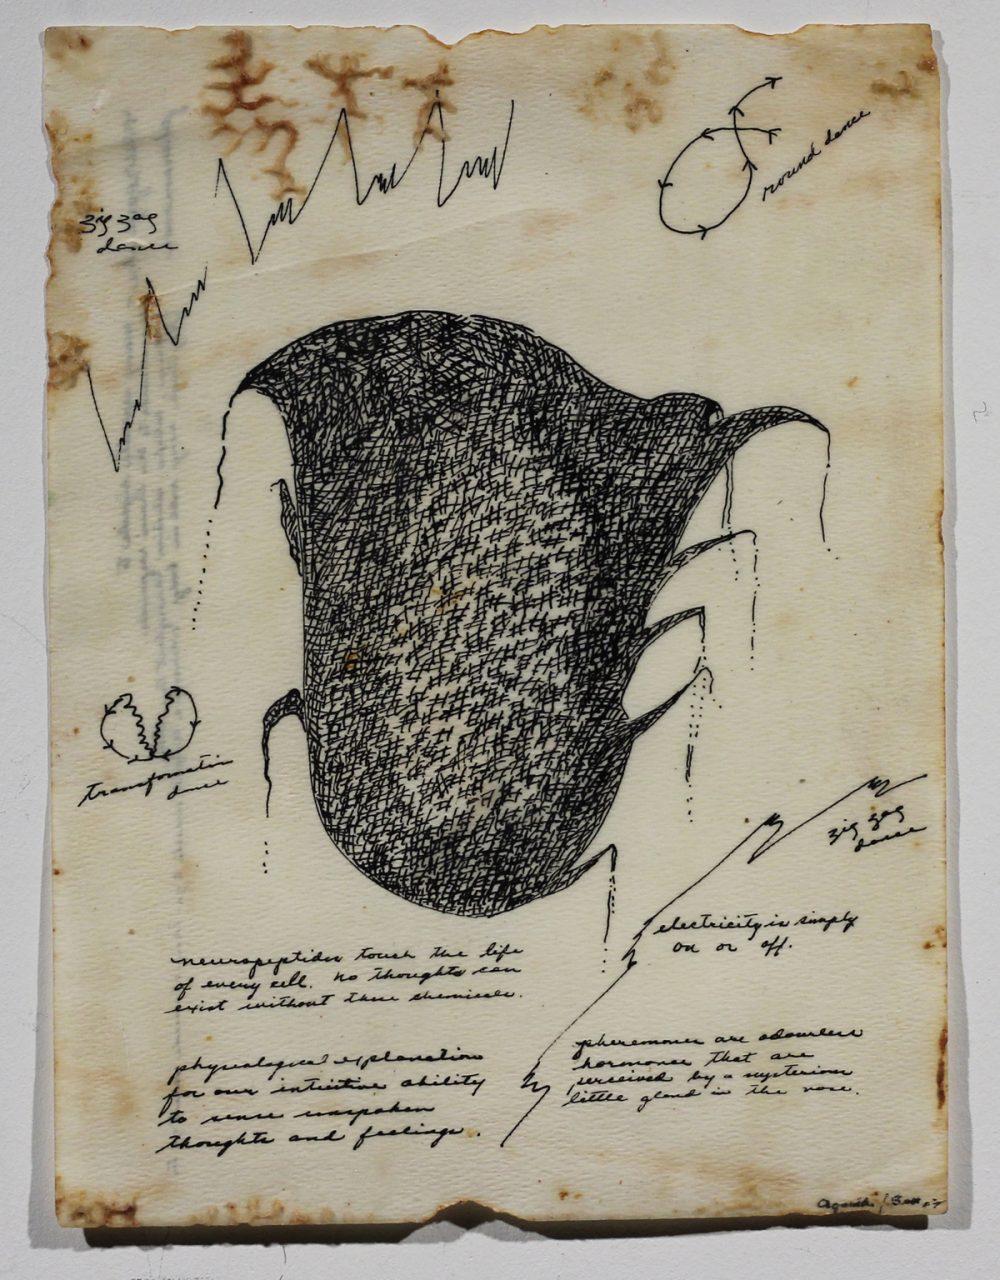 round dance
zig zag
dance
transformation
dance
zig zag
dance
electricity is simply
on or off.
neuropeptides touch the life
of every cell. no thoughts can
exist without these chemicals.
pheromones are odourless
hormones that are
perceived by a mysterious
little gland in the nose.
physiological explanation
for our intuitive ability
to sense unspoken
thoughts and feelings.